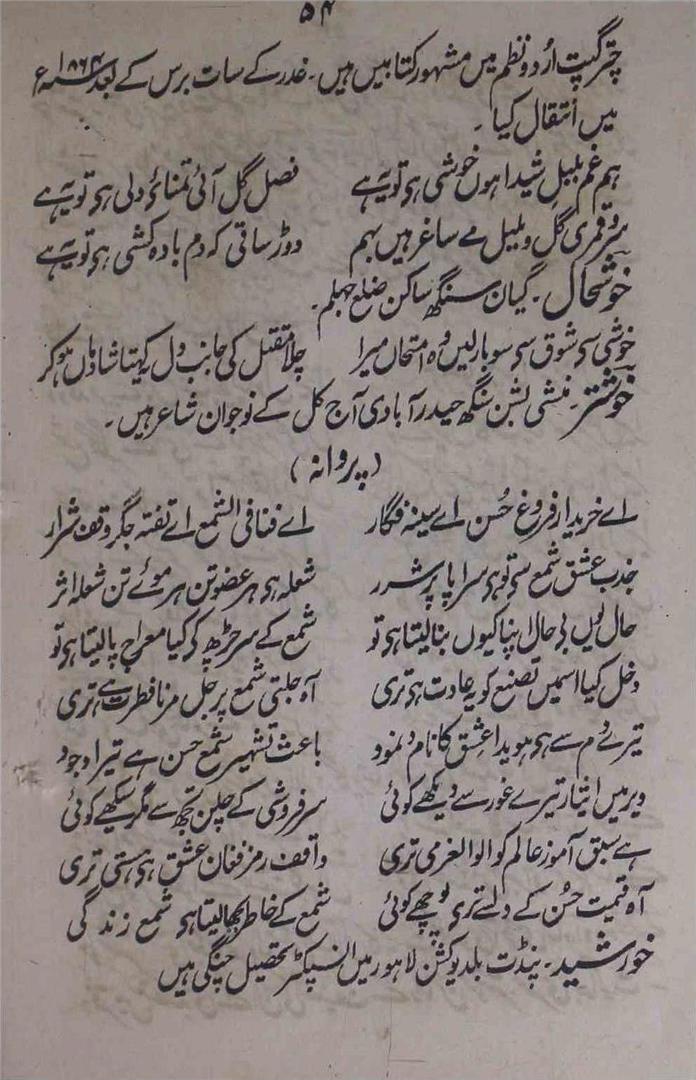 ۵۴
چترگپت اُردو نظم میں مشہور کتابیں ہیں۔ غدر کے سات برس کے بعد ۱۸۶۴ء
میں انتقال کیا۔
ہم غم بلبل شیدا ہوں خوشی ہی تو یہ ہے فصل گل آئی تمنائے دلی ہی تو یہ ہے
سرو قمری گل و بلبل مے ساغر ہیں بہم دوڑ ساقی کہ دم بادہ کشی ہی تو یہ ہے
خوشحال۔ گیان سنگھ ساکن ضلع جہلم۔
خوشی سی شوق سی سو بار لیں وہ امتحاں میرا چلا مقتل کی جانب دل یہ کہتا شادماں ہو کر
خوشتر۔ منشی بشن سنگھ حیدرآبادی آج کل کے نوجوان شاعر ہیں۔
(پروانہ)
اے خریدار فروغ حُسن اے سینہ فگار اے فنا فی الشمع اے تفتہ جگر وقف شرار
جذب عشق شمع سی تو ہی سراپا پر شرر شعلہ ہی ہر عضو تن ہر موئے تن شعلہ اثر
حال یوں بی حال اپنا کیوں بنا لیتا ہی تو شمع کے سر چڑھ کی کیا معراج پا لیتا ہی تو
دخل کیا اسمیں تصنع کو یہ عادت ہی تری آہ جلتی شمع پر جل مرنا فطرت ہے تری
تیرے دم سے ہی ہویدا عشق کا نام و نمود باعث تشہیر شمع حسن ہے تیرا وجود
دیر میں ایثار تیرے غور سے دیکھے کوئی سرفروشی کے چلن تجھ سے مگر سیکھے کوئی
ہے سبق آموز عالم کو الوالعزمی تری واقف رمز فغان عشق ہی ہستی تری
آہ قیمت حُسن کے دل سے تری پوچھے کوئی شمع کے خاطر بجھا لیتا ہی شمع زندگی
خورشید۔ پنڈت بلدیو کشن لاہور میں انسپکٹر تحصیل چنگی ہیں